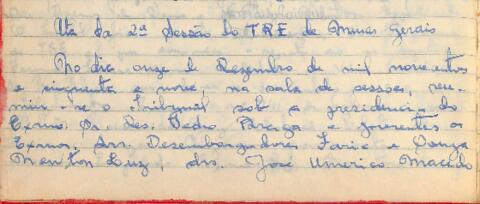 Ata da 2ª Sessão do TRE de Minas Gerais
No dia onze de Dezembro de mil novecentos
e cinquenta e nove, na sala de sessões, reu-
niu-se o Tribunal sob a presidencia do
Exmo. Sr. Des. Pedro Braga e presentes os
Exmos. Srs. Desembargadores Faria e Souza
Newton Luz, drs. José Americo Macedo